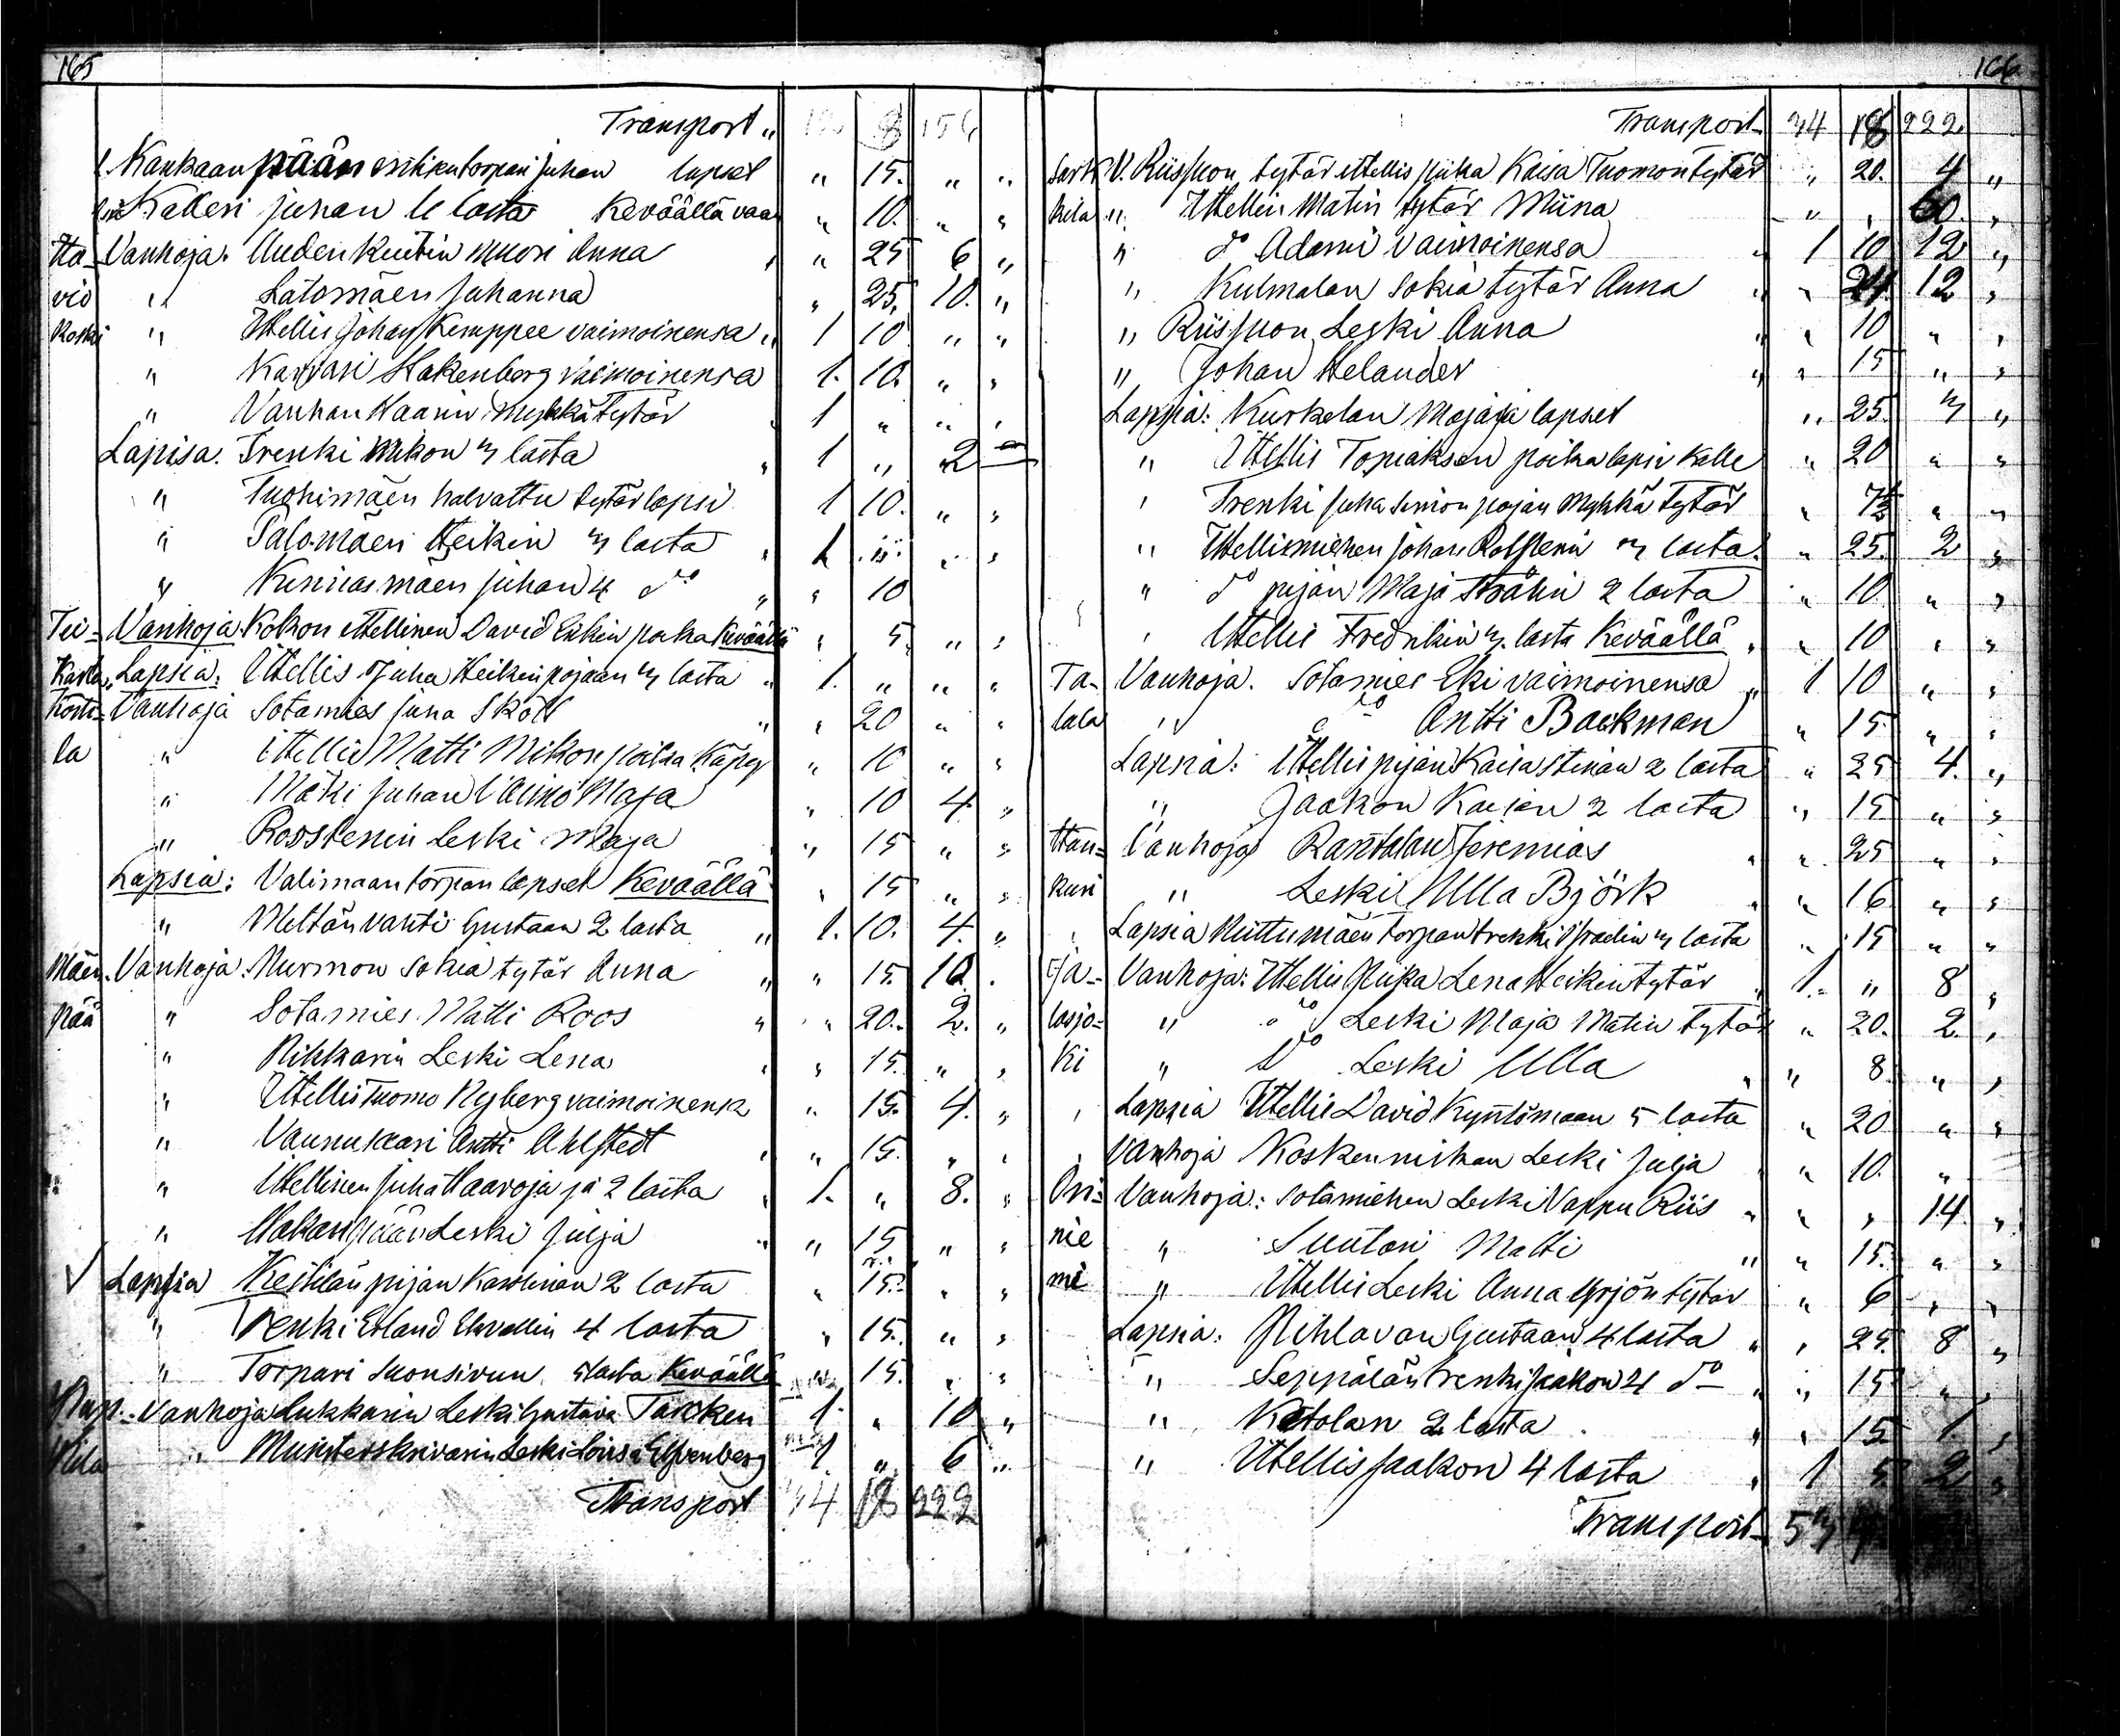 165
Transport „ 8 156
Kankaanpään torpan Juhan lapset „ 15. „ „
Kalleri Juhan 4 lasta Keväällä vaan „ 10. „ „
Ha- Vanhoja. Uudenkuitin muori Anna „ 25 6 „
vio „ Latomäen Juhanna „ 25. 10. „
Koski „ Ittellis Johan Kemppee vaimoinensa „ 1 10 „ „
„ Karvari Stakenberg vaimoinensa 1. 10. „ „
„ Vanhan Kaarin Mykkä Tytär 1 „ „ „
Lapisa. Trenki Mikon 3 lasta „ 1 „ 2 —
„ Tuohimäen halvattu tytär lapsi 1 10. „ „
„ Palomäen Heikin 3 lasta „ 1 „ „ „
„ Kinnasmäen Juhan 4 do „ „ 10
Tii- Vanhoja Kokon ittellinen David Erkin poika Keväällä „ 5. „ „
Karla. Lapsia: Ittellis Juha Heikinpojaan 3 lasta „ 1. „ „ „
Kosti- Vanhoja Sotamies Juha Sköld „ 20 „ „
la „ Ittellis Matti Mikonpoika Käpy „ 10 „ „
„ Mäki Juhan Vaimo Maja „ 10 4. „
„ Roosteenin Leski Maja „ 15 „ „
Lapsia: Valimaan torpan lapset Keväällä „ 15 „ „
„ Mettänvahti Gustaan 2 lasta „ 1. 10. 4. „
Mäen- Vanhoja. Murmon Sokia tytär Anna „ „ 15. 10. .
pää „ Sotamies Matti Roos „ „ 20. 2. „
„ Nikkarin Leski Lena „ 15. „ „
„ Ittellis Tuomo Nyberg vaimoinensa „ 15. 4. „
„ Vaunukaari Antti Ahlstedt „ 15. „ „
„ Ittellinen Juha Haavoja ja 2 lasta „ 1. „ 8. „
„ Hakanpään Leski Julja „ „ 15 „ „
Lapsia Keikilän pijan Karolinan 2 lasta „ 15. „ „
„ Renki Erland Ekvallin 4 lasta „ 15. „ „
„ Torpari Suonsivun 5 lasta Keväällä „ 15. „ „
Pap- Vanhoja Lukkarin Leski Gustava Tacken 1. „ 10 „
pila „ Munsterskrivarin Leski Lovisa Elfvenberg 1. „ 6 „
Transport 34 18 222
166
Transport 34 18 222
Sark V. Riispuon tytär ittellis piika Kaisa Tuomontytär „ 20. 4 „
kila „ Ittellis Matin tytär Miina „ „ „
„ do Adami vaimoinensa „ 1 10 12 „
„ Kulmalan Sokia tytär Anna „ „ 12 „
„ Riispuon Leski Anna „ „ 10 „ „
„ Johan Helander „ „ 15 „ „
Lapsia: Kurkelan Majaja lapset „ 25. 3 „
„ Ittellis Topiaksen poika lapsi Kalle „ 20 „ „
„ Trenki Juha Simon pojan Mykkä Tytär „ „ „
„ Ittellismiehen Johan Rolstenin 3 lasta „ 25. 2 „
„ do pijan Maja Strålin 2 lasta „ 10. „ „
„ Ittellis Fredrikin 3 lasta Keväällä „ „ 10 „ „
Ta- Vanhoja. Sotamies Eki vaimoinensa „ 1 10 „ „
lala „ do Antti Backman „ 15. „ „
Lapsia: Ittellis pijan Kaisa Stinan 2 lasta „ 25 4. „
„ Jaakon Kaisan 2 lasta „ 15 „ „
Han- Vanhoja Rantalan Jeremias „ „ 25 „ „
kuri „ Leski Ulla Björk „ „ 16 „ „
„ Lapsia Kuttumäen torpan trenki 3 lasta „ 15 „ „
Ja- Vanhoja: Ittellis piika Lena Heikintytär „ 1. „ 8 „
lasjo- „ do Leski Maja Matin tytär „ 20. 2. „
ki „ do Leski Ulla „ „ 8. „ „
„ Lapsia Ittellis David Kyntömaan 5 lasta „ 20 „ „
„ Vanhoja Koskenniskan Leski Julja „ 10. „
Oni- Vanhoja: Sotamiehen Leski Vappu Riis „ „ „ 14. „
nie „ Suutari Matti „ „ 15. „ „
mi „ Ittellis Leski Anna Yrjön tytär „ 6 „ „
Lapsia: Pihlavan Gustaan 4 lasta „ „ 25. 8 „
„ Seppälän trenki Jaakon 4 do „ „ 15 „ „
„ Ketolan 2 lasta „ „ 15. 1. „
„ Ittellis Jaakon 4 lasta „ 1 5. 2 „
Transport 53